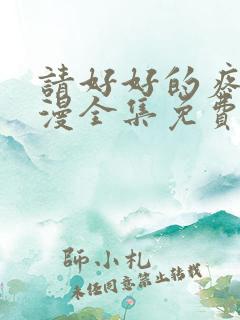 請好好的疼
漫全集免費
師小札
未經同意禁止轉載